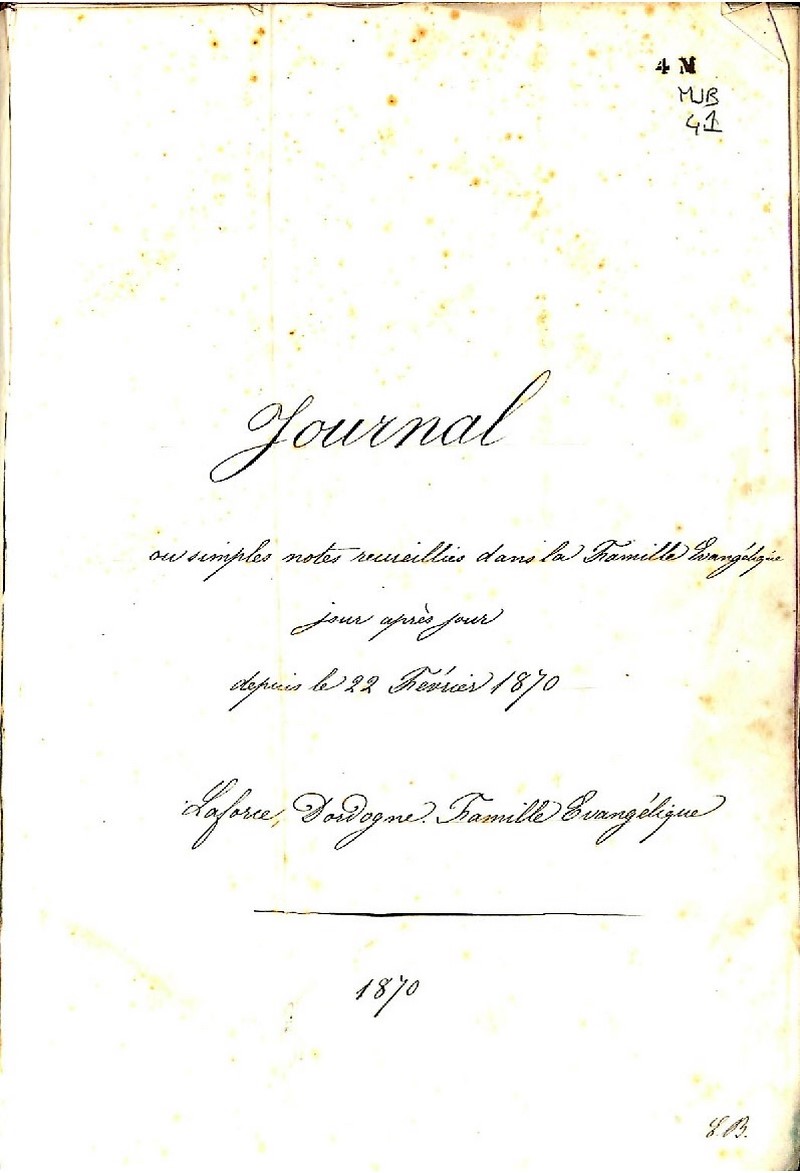 4 M
MJB
41
Journal
ou simples notes recueillies dans la Famille Evangélique
jour après jour
depuis le 22 Février 1870
Laforce, Dordogne. Famille Evangélique
1870
E.B.